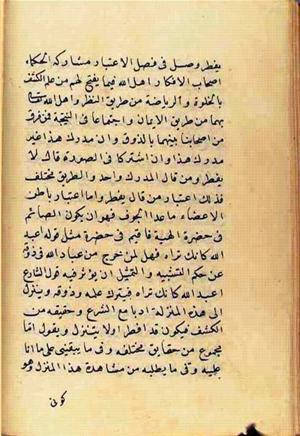 يفطر وصل في فصل الاعتبار مشاركه الحكماء
اصحاب الافكار اهل الله فيما يفتح لهم من علم الكشف
بالخلوة والرياضة من طريق النظر واهل الله
بهما من طريق الايمان واجتماعا في النتيجة فمن فرق
من اصحابنا بينهما بالذوق وان مدرك هذا غير
مدرك هذا وان اشتركا في الصورة قال لا
يفطر ومن قال المدرك واحد والطريق مختلف
فذلك اعتبار من قال يفطر واما اعتبار باطن
الاعضاء ما عدا الجوف فهو ان يكون الصائم
في حضرة الهية فاقيم في حضرة مثل قوله اعبد
الله كانك تراه فهل لمن خرج من عباد الله في ذوق
عن حكم التشبيه والتمثيل ان يؤثر فيه قول الشارع
اعبد الله كانك تراه فيترك علمه وذوقه وينزل
الى هذه المنزلة ادبا مع الشرع وحقيقه من
الكشف فيكون قد افطر او لا يتنزل ويقول انا
مجموع من حقايق مختلفه وفي ما يبقيني على ما انا
عليه وفي ما يطلبه من مشاهدة هذا المنزل وهو
كونى